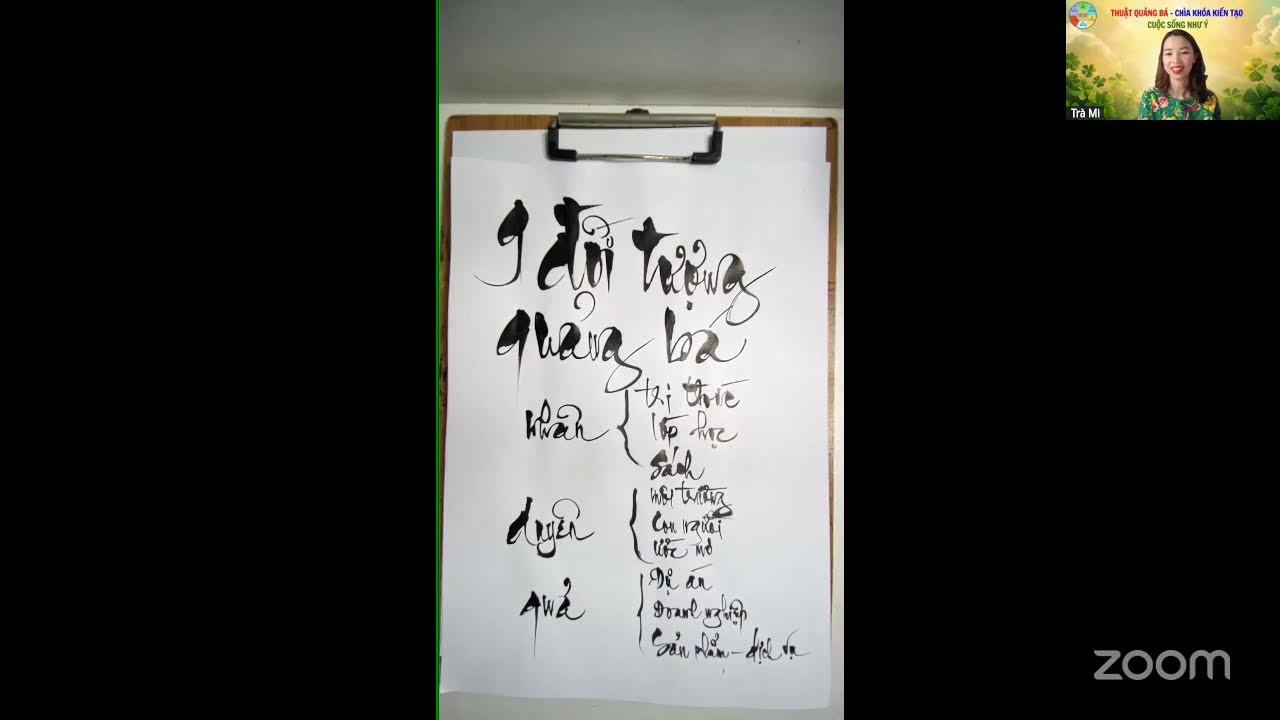 9 đối tượng
quảng bá
nhân
thị trường
lớp học
sách
duyên
môi trường
con người
ước mơ
quả
Dự án
Doanh nghiệp
Sản phẩm - dịch vụ
THUẬT QUẢNG BÁ - CHÌA KHÓA KIẾN TẠO
CUỘC SỐNG NHƯ Ý
Trà Mi
zoom